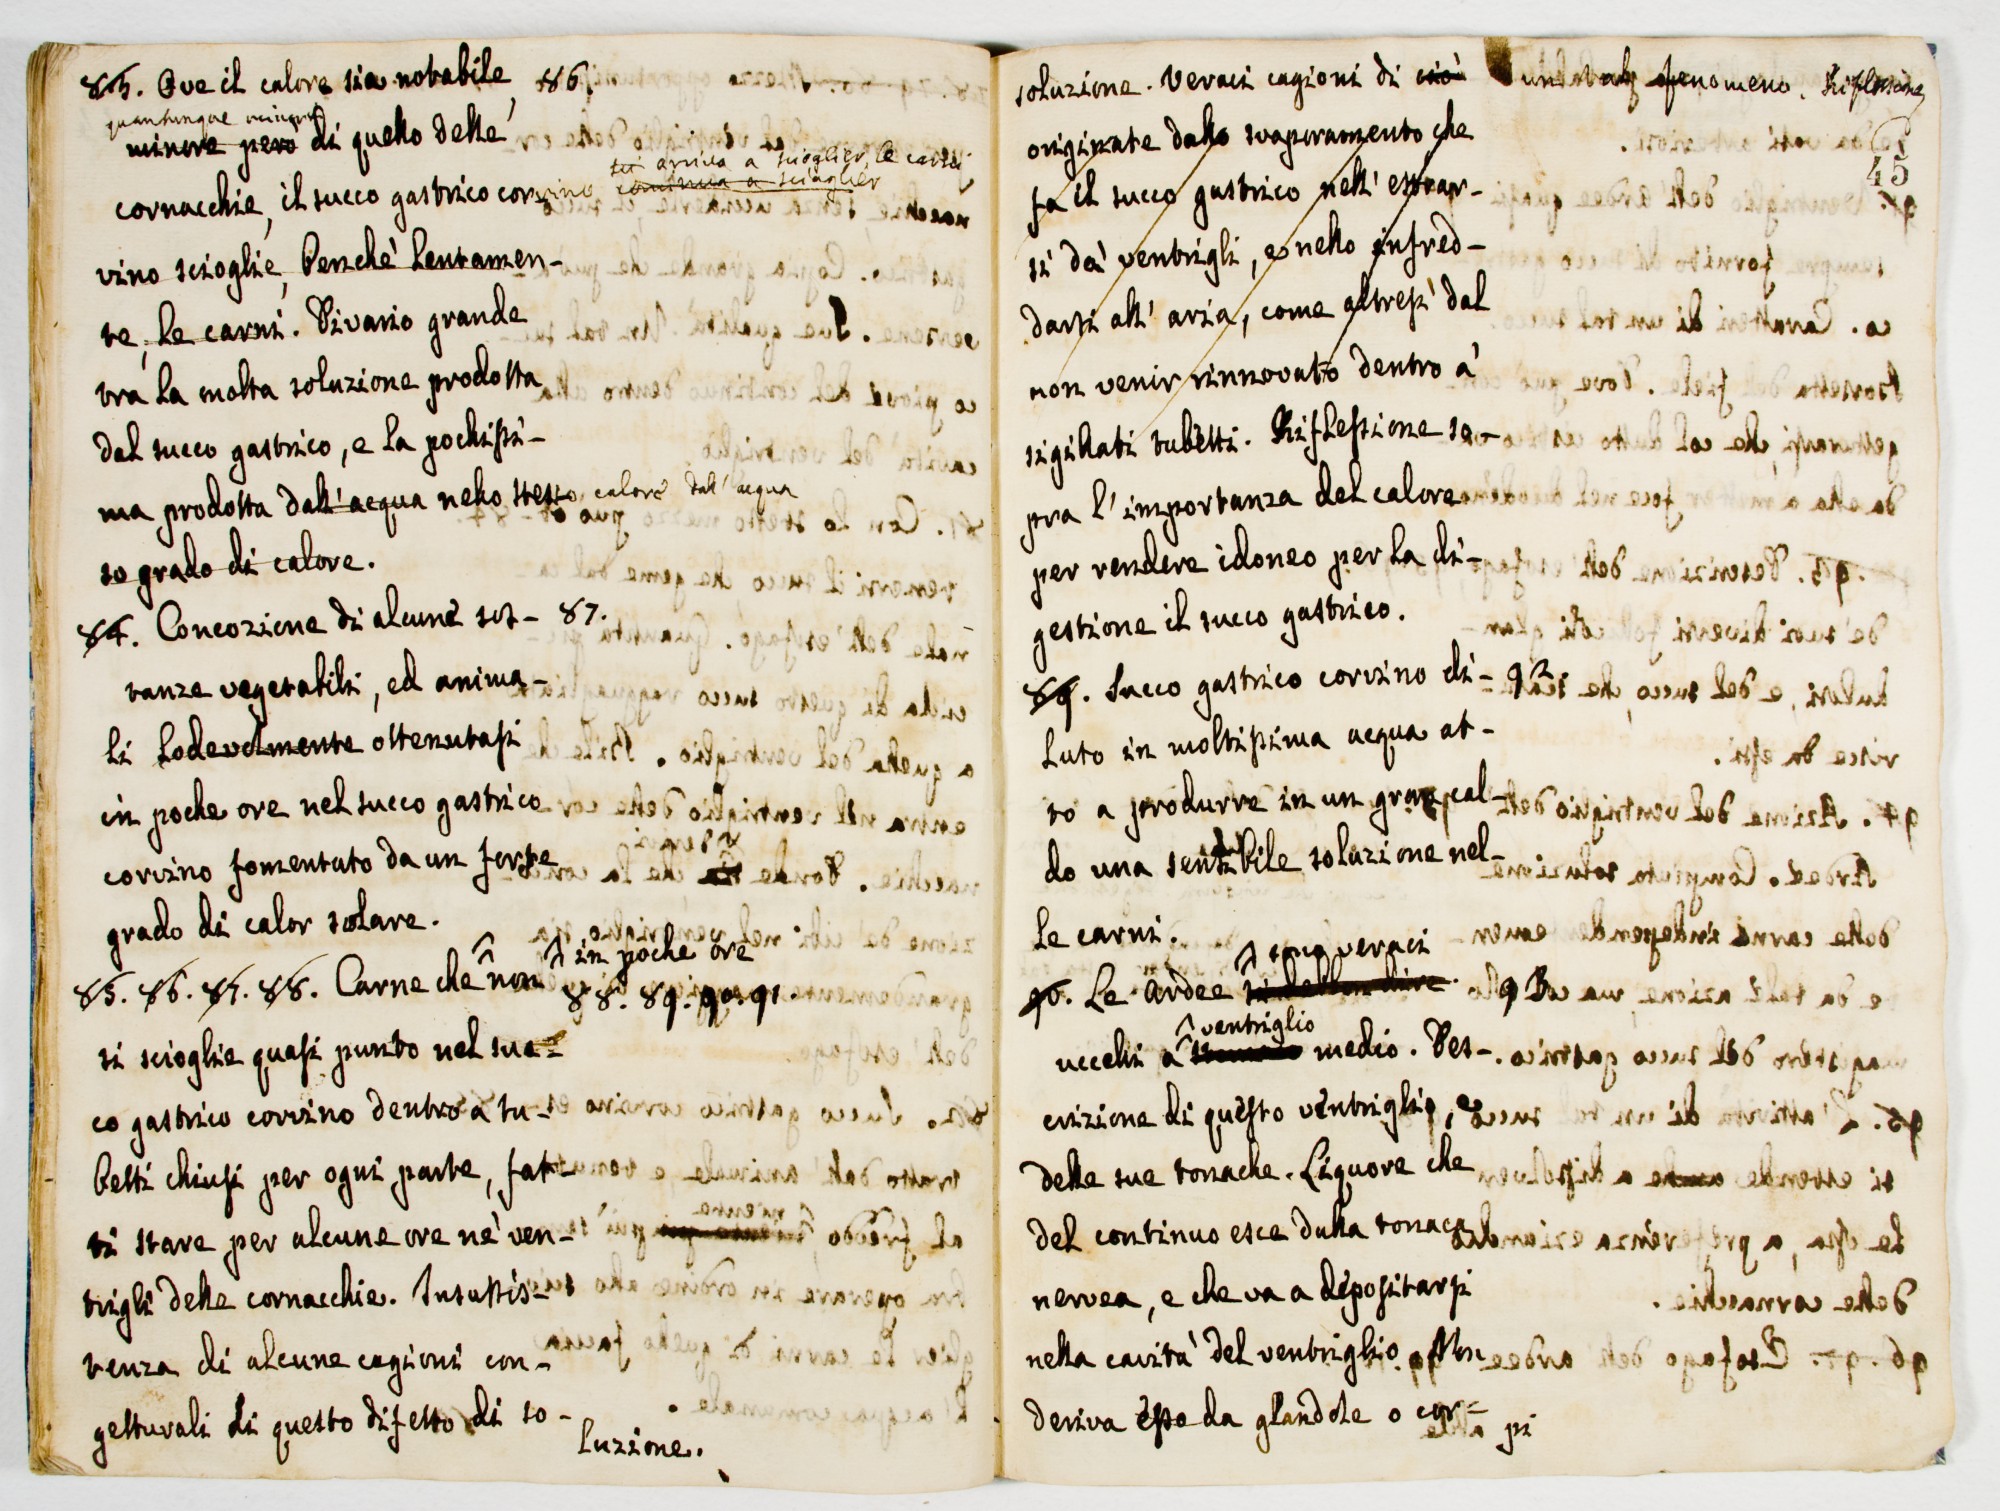 83. Ove il calore sia notabile, 86
quantunque minore
minore però di quello delle
arriva a scioglier le carni
continua a scioglier
cornacchie, il succo gastrico corvino
vino scioglie, benchè lentamen-
te, le carni. Divario grande
tra la molta soluzione prodotta
dal succo gastrico, e la pochissi-
ma prodotta dall'acqua nello stesso calore dall'acqua
so grado di calore.
84. Concozione di alcune sos- 87.
tanze vegetabili, ed anima-
li lodevolmente ottenutasi
in poche ore nel succo gastrico
corvino fomentato da un forte
grado di calor solare.
85. 86. 87. 88. Carne che non in poche ore 88. 89. 90. 91.
si scioglie quasi punto nel suc-
co gastrico corvino dentro a tu-
betti chiusi per ogni parte, fat-
ti stare per alcune ore ne' ven-
trigli delle cornacchie. Insussis-
tenza di alcune cagioni con-
getturali di questo difetto di so-
luzione.
soluzione. Veraci cagioni di ciò un tal fenomeno. Riflessione
45
originate dallo svaporamento che
fa il succo gastrico nell'estrar-
si da' ventrigli, e nello infred-
darsi all'aria, come altresì dal
non venir rinnovato dentro a'
sigillati tubetti. Riflessione so-
pra l'importanza del calore
per rendere idoneo per la di-
gestione il succo gastrico.
89. Succo gastrico corvino di- 92
luto in moltissima acqua at-
to a produrre in un gran cal-
do una sensibile soluzione nel-
le carni.
sono veraci
90. Le Ardee si debbon dire 93
ventriglio
uccelli a stomaco medio. Des-
crizione di questo ventriglio, e
delle sue tonache. Liquore che
del continuo esce dalla tonaca
nervea, e che va a depositarsi
nella cavità del ventriglio. Non
deriva esso da glandole o cor-
pi